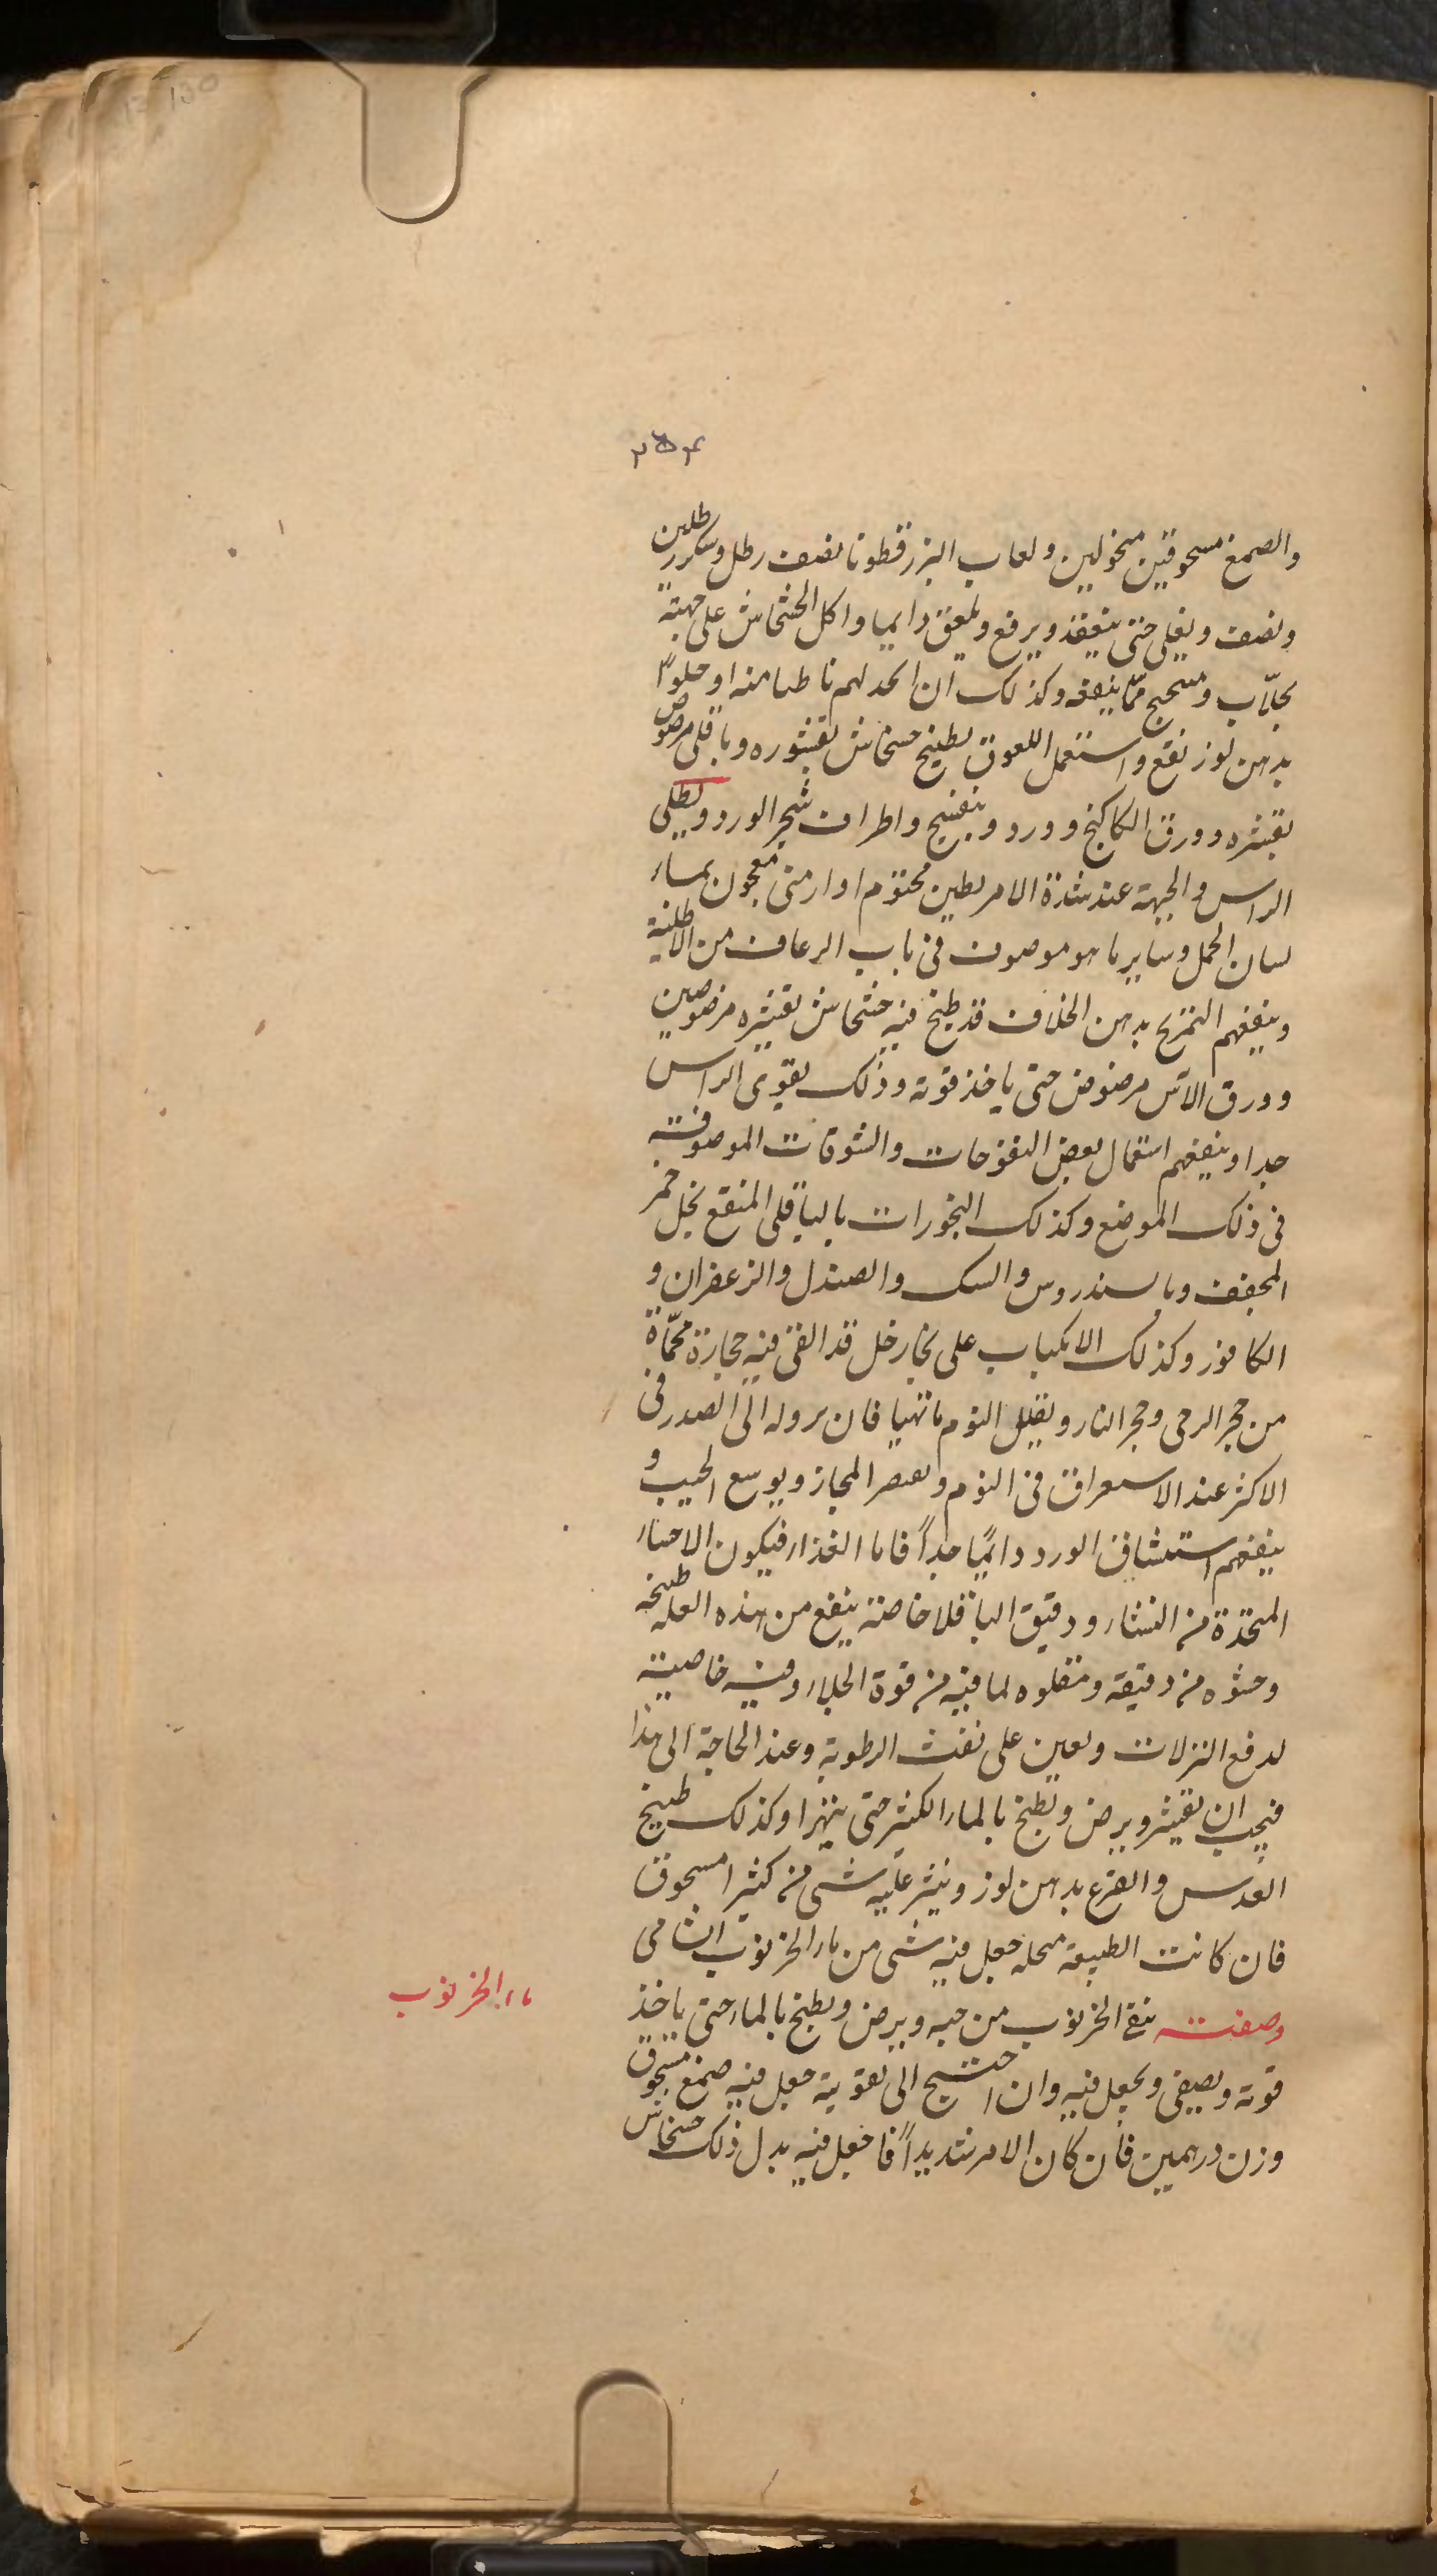 ٢٥٤
والصمغ مسحوقين منخولين ولعاب البزرقطونا نصف رطل وسكر رطلين
ونصف ويغلى حتى ينعقد ويرفع ويلعق دايما واكل الخشخاش على جهته
بجلّاب و ممّا ينفعه وكذلك ان اتخد لهم ناطبا منه او حلوا
بدهن لوز نفع واستعمل اللعوق بطبيخ خشخاش بقشوره وباقلى مرضوض
بقشره وورق الكاكنج وورد وبنفسج واطراف شجر الورد ويطلى
الراس والجبهة عند شدة الامر بطين مختوم او ارمنى معجون بماء
لسان الحمل وساير ما هو موصوف فى باب الرعاف من الاطلية
وينفعهم التمزيخ بدهن الخلاف قد طبخ فيه خشخاش بقشره مرضوضين
وورق الآس مرضوض حتى ياخذ قوته وذلك يقوى الراس
جدا وينفعهم استعمال بعض النفوخات والنشوقات الموصوفة
فى ذلك الموضع وكذلك البخورات بالباقلى المنقع بخل خمر
المجفف وبالسندروس والسك والصندل والزعفران و
الكافور وكذلك الانكباب على بخار خل قد القى فيه حجارة محمّاة
من حجر الرحى وحجر النار ويقلل النوم ما تهيا فان نزوله الى الصدر فى
الاكثر عند الاستغراق فى النوم ولعصر المجاز ويوسع الجيب و
ينفعهم استنشاق الورد دايمًا جداً فاما الغذاء فيكون الاحساء
المتخذة من النشاء ودقيق الباقلا خاصة ينفع من هذه العله طبيخه
وحشوه من دقيقه ومقلوه لما فيه من قوة الجلاء وفيه خاصية
لدفع النزلات ويعين على نفث الرطوبة وعند الحاجة الى هذا
فيجب ان يقشر ويرض ويطبخ بالماء الكثير حتى يتهرا وكذلك طبيخ
العدس والقرع بدهن لوز وينثر عليه شى من كثيرا مسحوق
فان كانت الطبيعة منحله جعل فيه شى من ماء الخرنوب الشامى
وصفته ينقى الخرنوب من حبه ويرض ويطبخ بالماء حتى ياخذ
قوته ويصفى ويجعل فيه وان احتيج الى تقوية جعل فيه صمغ مسحوق
وزن درهمين فان كان الامر شديداً فاجعل فيه بدل ذلك خشخاش
ماء الخرنوب